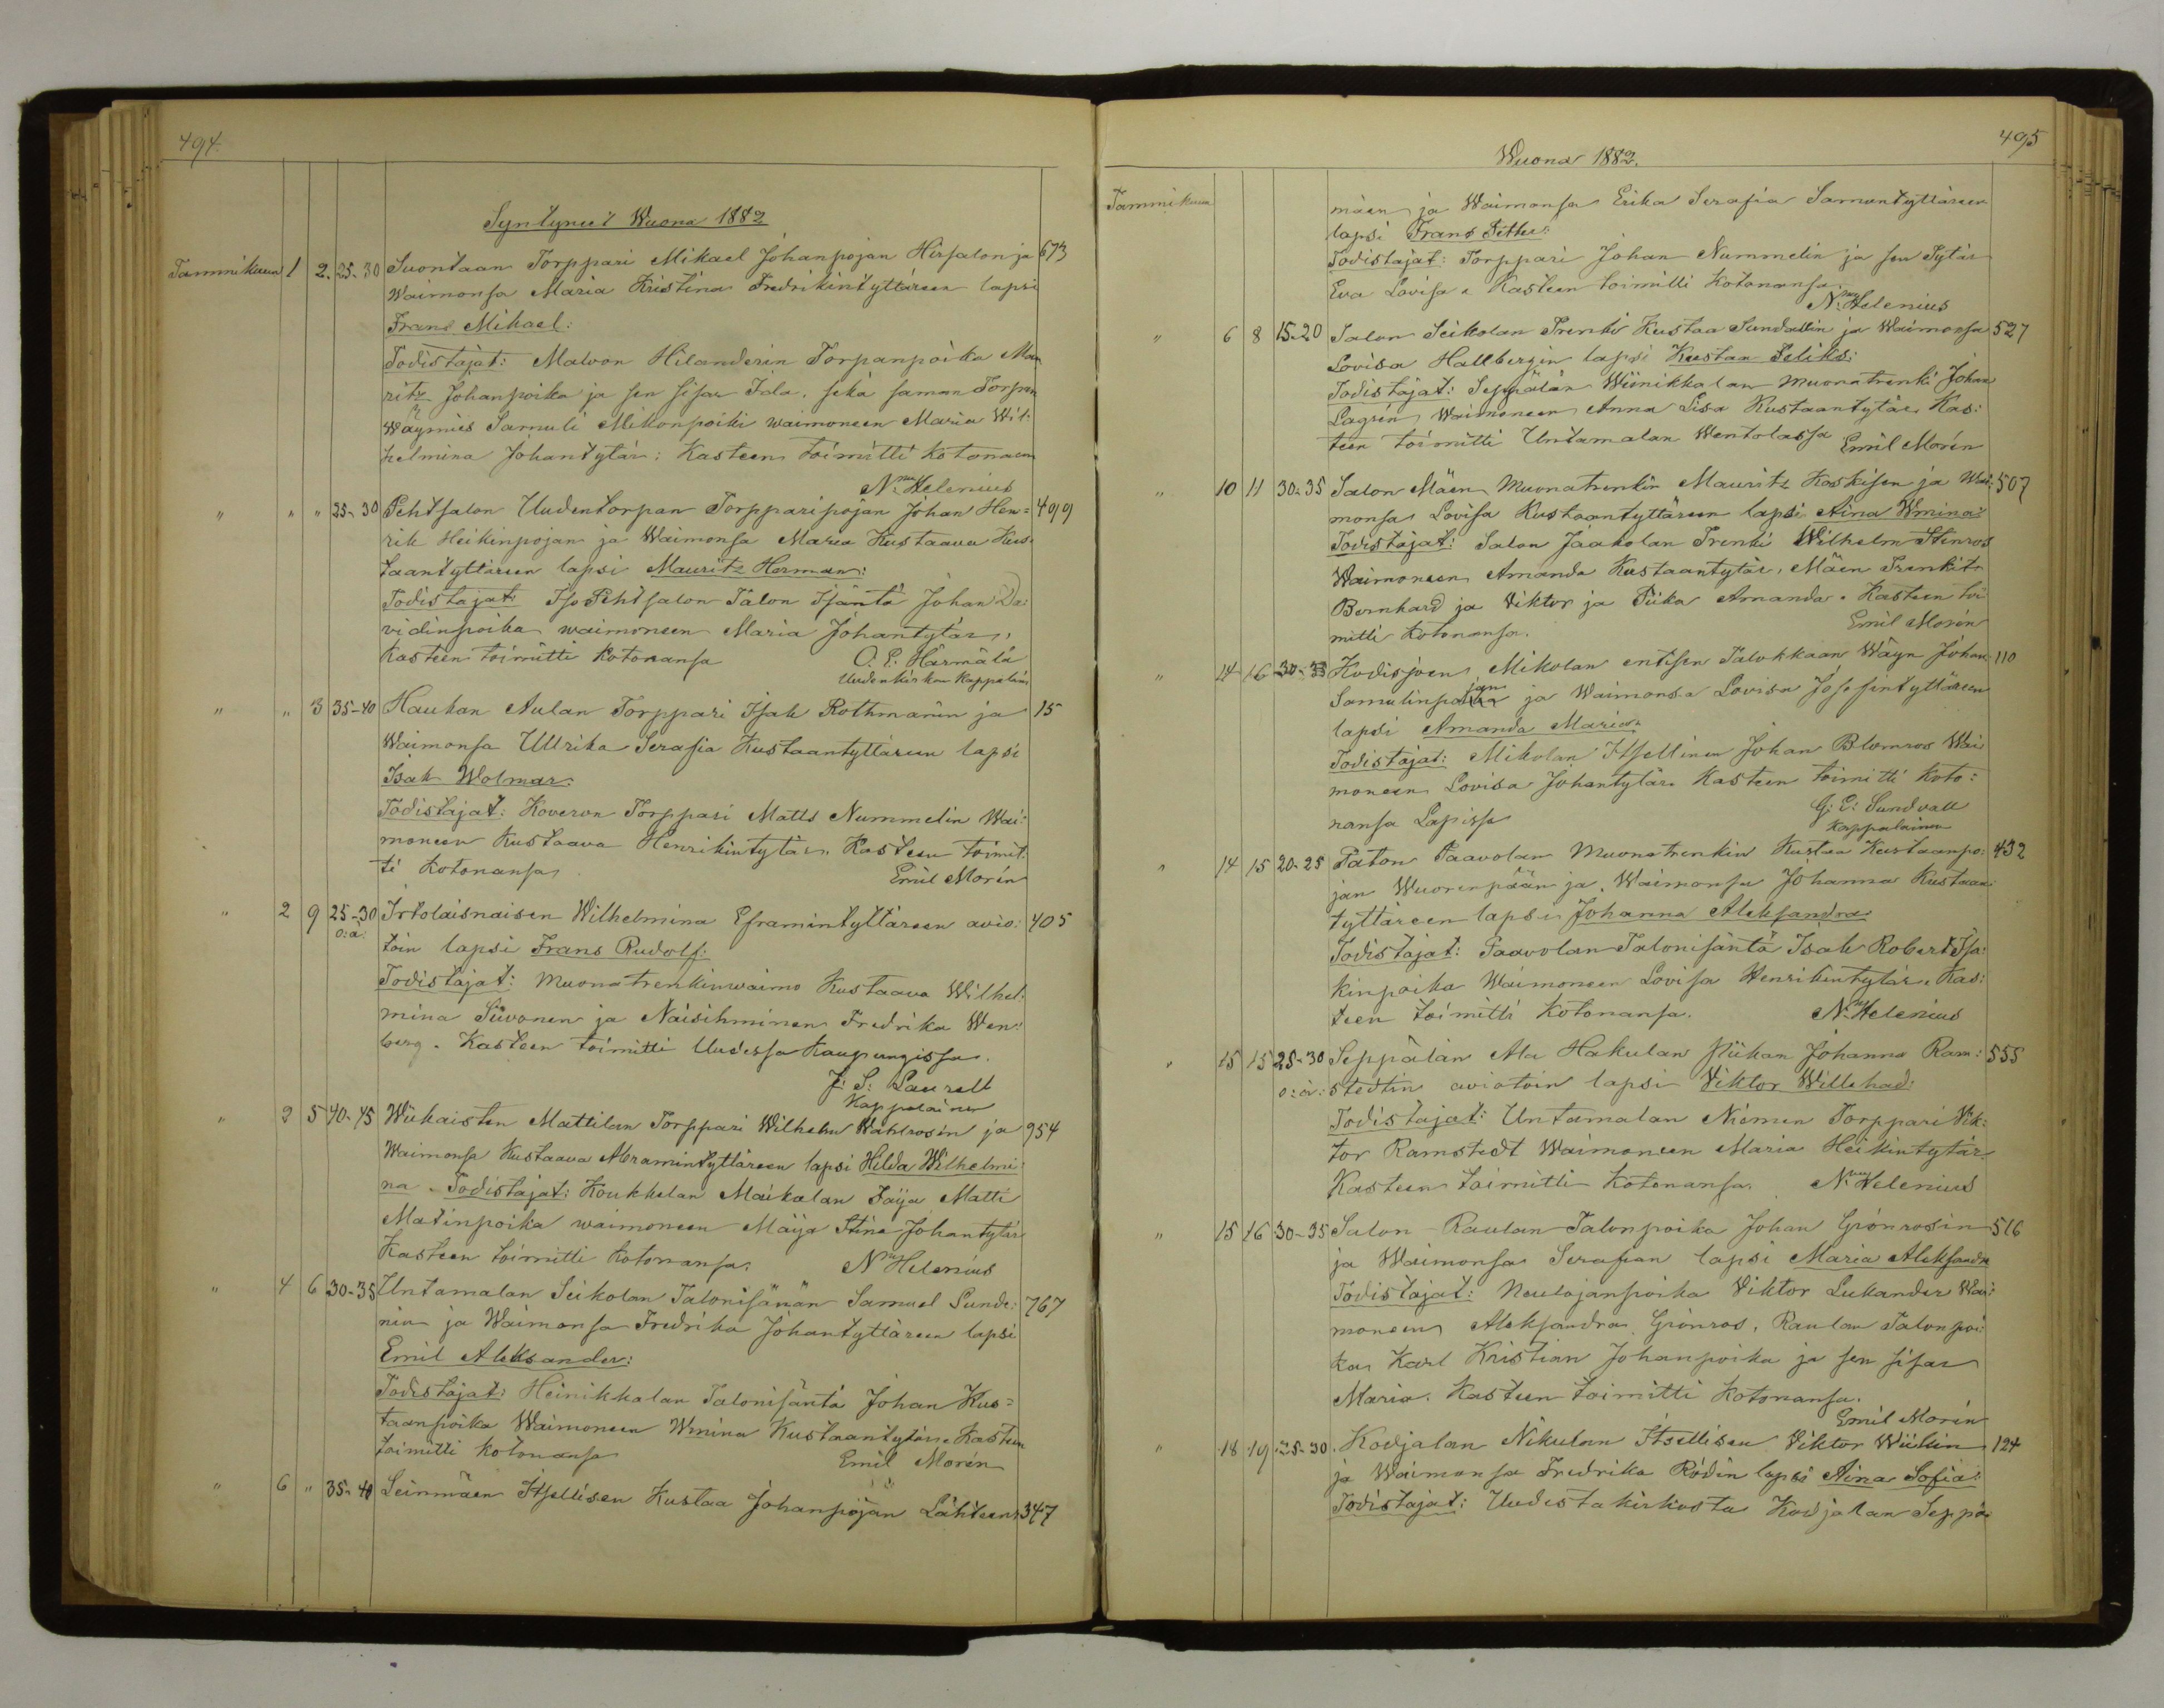 494.
Syntyneet Wuona 1882
Tammikuun 1 2. 25-30 Suontaan Torppari Mikael Johanpojan Hirsalon ja 673
Waimonsa Maria Kristina Fredrikintyttäreen lapsi
Frans Mikael:
Todistajat: Malvon Hilanderin Torpanpoika Mau
ritz Johanpoika ja sen sisar Ida. sekä saman Torpan
Wäymies Samuli Mikonpoiki waimoneen Maria Wil:
helmina Johantytär: Kasteen toimitti kotonaan
N. Helenius
" " " 25-30 Pehtsalon Uudentorpan Torpparipojan Johan Hen= 499
rik Heikinpojan ja Waimonsa Maria Kustaava Kus
taantyttäreen lapsi Mauritz Herman:
Todistajat: Iso Pehtsalon Talon Isäntä Johan Da:
vidinpoika waimoneen Maria Johantytär,
Kasteen toimitti kotonansa O. E. Härmälä
Uudenkirkon Kappalain
" " 3 35-40 Haukan Aulan Torppari Isak Rothmanin ja 15
Waimonsa Ullrika Serafia Kustaantyttäreen lapsi
Isak Wolmar:
Todistajat: Koveron Torppari Matts Nummelin Wai:
moneen Kustaava Henrikintytär. Kasteen toimit:
ti kotonansa Emil Morén
" 2 9 25-30 Irtolaisnaisen Wilhelmina Eframintyttäreen avio: 405
o: ä:
toin lapsi Frans Rudolf:
Todistajat: Muonatrenkinwaimo Kustaava Wilhel:
mina Siivonen ja Naisihminen Fredrika Wen:
berg. Kasteen toimitti Uudessa Kaupungissa.
J: S: Laurell
Kappalainen
" 2 5 40-45 Wiikaisten Mattilan Torppari Wilhelm Wahlrosin ja 954
Waimonsa Kustaava Abramintyttäreen lapsi Hilda Wilhelmi
na. Todistajat: Koukkelan Maikolan Faija Matti
Matinpoika waimoneen Maija Stina Johantytär
Kasteen toimitti kotonansa. N Helenius
" 4 6 30-35 Untamalan Seikolan Talonisänän Samuel Sunde: 767
nin ja Waimonsa Fredrika Johantyttäreen lapsi
Emil Aleksander:
Todistajat: Heinikkalan Talonisäntä Johan Kus=
taanpoika Waimoneen Wmina Kustaantytär. Kasteen
toimitti kotonansa Emil Morén
" 6 " 35-40 Leinmäen Itsellisen Kustaa Johanpojan Lähteen 347
495
Wuona 1882.
Tammikuun
mäen ja Waimonsa Erika Serafia Samuntyttäreen
lapsi Frans Vihtor:
Todistajat: Torppari Johan Nummelin ja sen Tytär
Eva Lovisa. Kasteen toimitti kotonansa.
N. Helenius
" 6 8 15-20 Salon Seikolan Trenki Kustaa Sundallin ja Waimonsa 527
Lovisa Hallbergin lapsi Kustaa Feliks:
Todistajat: Seppälän Wiinikkalan Muonatrenki Johan
Lagrén Waimoneen Anna Lisa Kustaantytär. Kas:
teen toimitti Untamalan Wentolassa Emil Morén
" 10 11 30-35 Salon Mäen Muonatrenkin Mauritz Koskisen ja Wai: 507
monsa Lovisa Kustaantyttäreen lapsi Aina Wmina:
Todistajat: Salon Jaakolan Trenki Wilhelm Stenros
Waimoneen Amanda Kustaantytär, Mäen Trenkit
Bernhard ja Viktor ja Piika Amanda. Kasteen toi
mitti kotonansa. Emil Morén
" 14 16 30-33 Kodisjoen Mikolan entisen Talokkaan Wäyn Johan 110
jan
Samulinpoika ja Waimonsa Lovisa Josefintyttäreen
lapsi Amanda Maria
Todistajat: Mikolan Itsellinen Johan Blomroos Wai
moneen Lovisa Johantytär. Kasteen toimitti koto:
nansa Lapissa G: E: Sundvall
Kappalainen
" 14 15 20-25 Taton Paavolan Muonatrenkin Kustaa Kustaanpo: 432
jan Wuorenpään ja Waimonsa Johanna Kustaan:
tyttäreen lapsi Johanna Aleksandra
Todistajat: Paavolan Talonisäntä Isak Robert Isa:
kinpoika Waimoneen Lovisa Henrikintytär. Kas:
teen toimitti kotonansa. N. Helenius
" 15 15 25-30 Seppälän Ala Hakulan Piikan Johanna Ram: 555
o: ä: stedtin aviotoin lapsi Viktor Willehad:
Todistajat: Untamalan Niemen Torppari Vik:
tor Ramstedt Waimoneen Maria Heikintytär.
Kasteen toimitti kotonansa. N. Helenius
" 15 16 30-35 Salon Raulan Talonpoika Johan Grönrosin 516
ja Waimonsa Serafian lapsi Maria Aleksandra
Todistajat: Neulojanpoika Viktor Lukander Wai:
moneen Aleksandra Grönros, Raulan Talonpoi:
ka Karl Kristian Johanpoika ja sen sisar
Maria. Kasteen toimitti kotonansa.
Emil Morén
" 18 19 25-30 Kodjalan Nikulan Itsellisen Viktor Wiikin 124
ja Waimonsa Fredrika Rödin lapsi Aina Sofia:
Todistajat: Uudestakirkosta Kodjalan Seppä